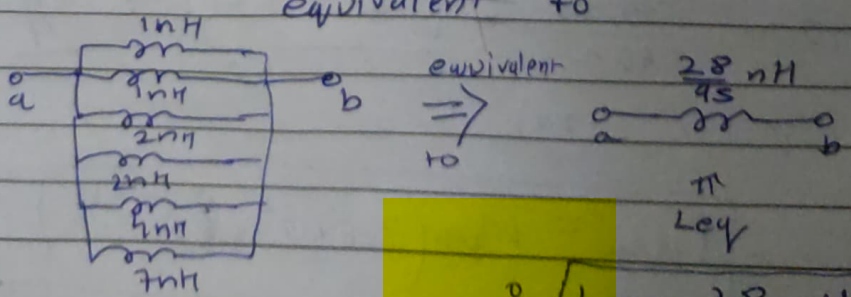 equivalent to
1nH
a
4nH
b
2nH
2nH
4nH
7nH
equivalent
⇒
to
28/95 nH
a
b
π
Leq